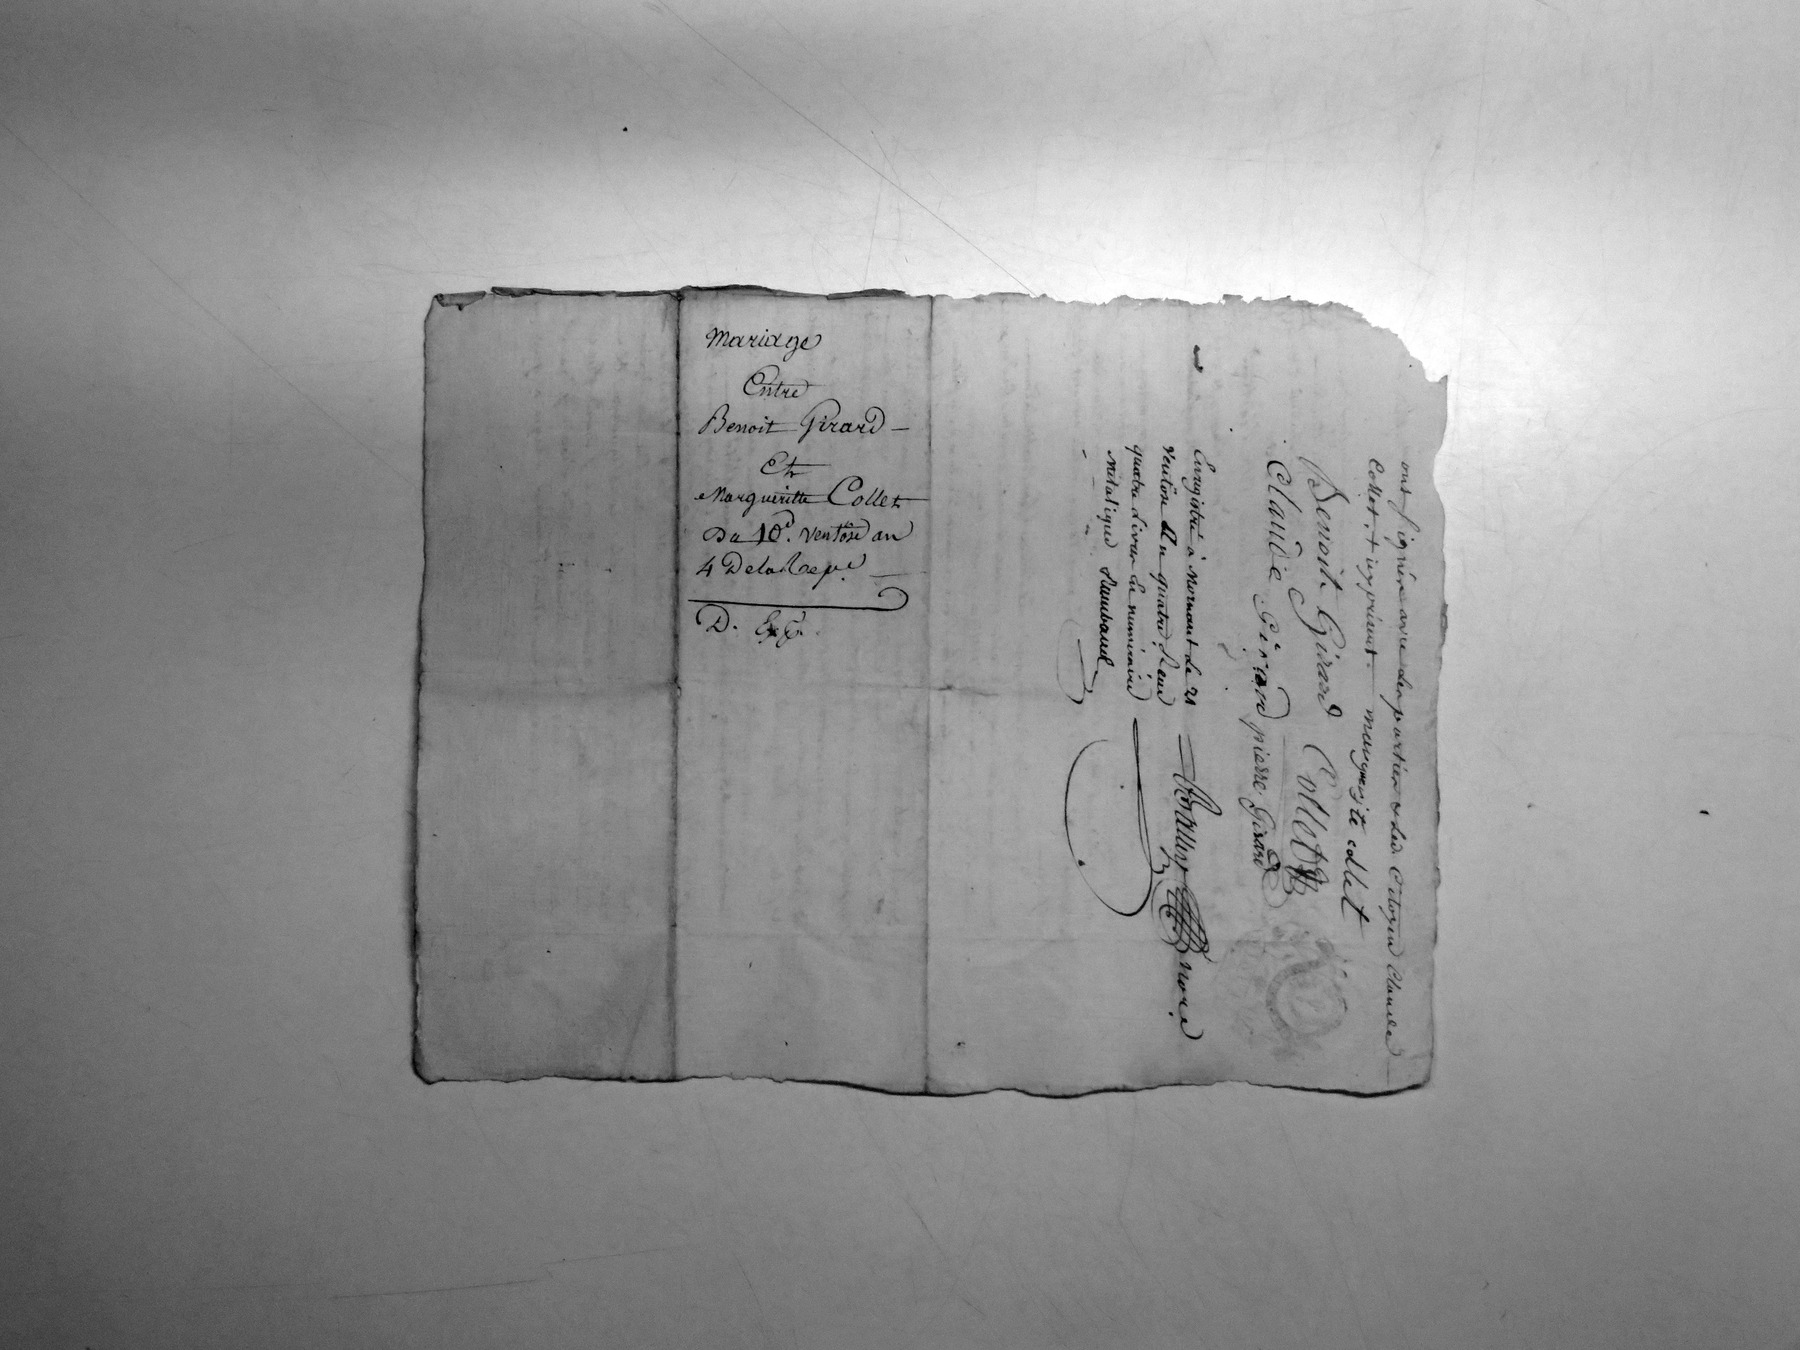 Mariage
Entre
Benoit Girard —
Et
Margueritte Collet
Du 10e. Ventôse an
4 De la Repe.
D. Ex.
ont signés avec les parties & led. Citoyen Claude
Collet, ici présent. marguerite collet
Benoit Girard Collet
Claude Girard pierre Girard
Enregistré à Mornant le 21
Ventôse An quatre Reçu
quatre livres en numéraire
métalique Rambaud
nore